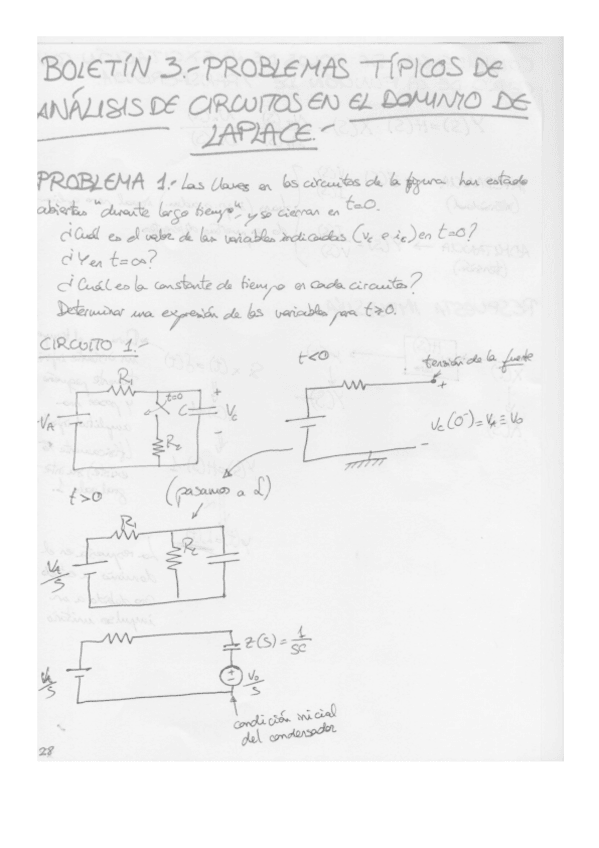 BOLETÍN 3.- PROBLEMAS TÍPICOS DE
ANÁLISIS DE CIRCUITOS EN EL DOMINIO DE
LAPLACE.-
PROBLEMA 1.- Las llaves en los circuitos de la figura han estado
abiertas "durante largo tiempo", y se cierran en t=0.
¿Cuál es el valor de las variables indicadas (Vc e ic) en t=0?
¿Y en t=∞?
¿Cuál es la constante de tiempo en cada circuitos?
Determinar una expresión de las variables para t≥0.
CIRCUITO 1.-
t<0
tensión de la fuente
R1
t=0
C
+
Vc
-
VA
R2
+
Vc(0⁻)=VA≡V0
-
t>0
(pasamos a L)
R1
R2
VA/S
VA/S
Z(S)=1/SC
+
-
V0/S
condición inicial
del condensador
28